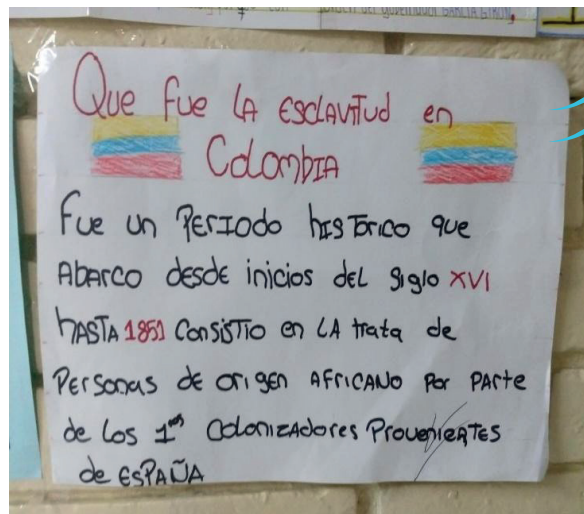 orden del governador GARCIA GIRON,
Que fue LA ESCLAVITUD en
COLOMBIA
Fue un PERIODO hISTORICO que
ABARCO desde inicios DEL siglo XVI
HASTA 1851 CONSISTIO en LA trata de
PERSONAS de origen AFRICANO POR PARTE
de Los 1ros COLONIZADORES PROVENIENTES
de ESPAÑA